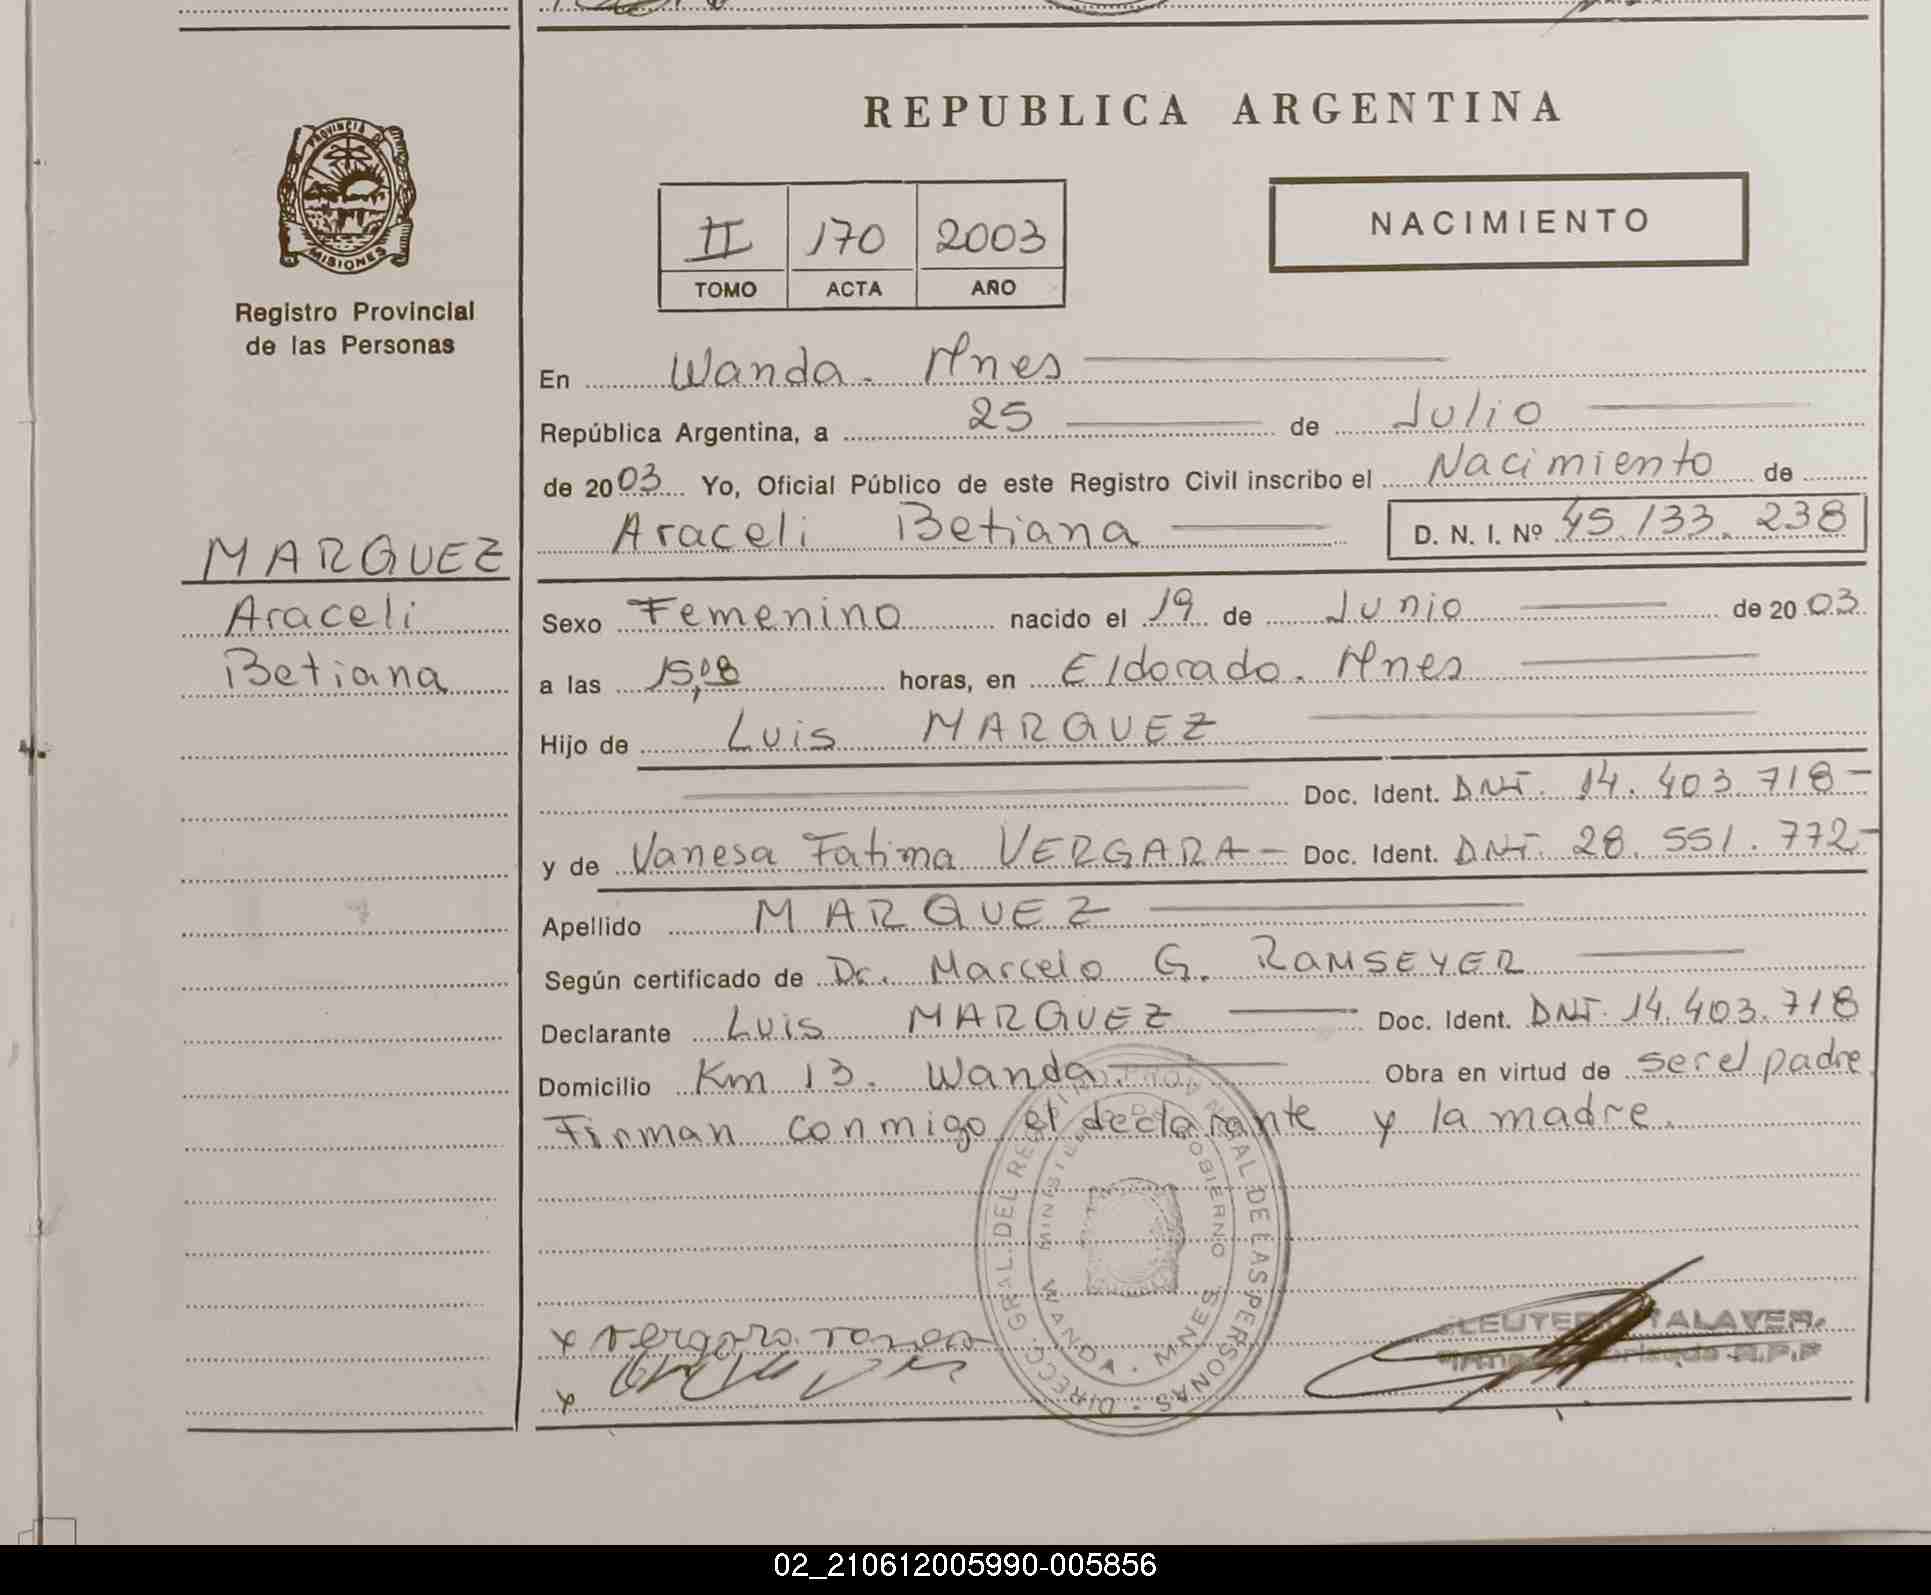 REPUBLICA ARGENTINA
PROVINCIA DE MISIONES
Registro Provincial
de las Personas
II 170 2003
TOMO ACTA AÑO
NACIMIENTO
En Wanda. Mnes
República Argentina, a 25 de Julio
de 2003 Yo, Oficial Público de este Registro Civil inscribo el Nacimiento de
Araceli Betiana D. N. I. Nº 45.133.238
MARQUEZ
Araceli
Betiana
Sexo Femenino nacido el 19 de Junio de 2003
a las 15,08 horas, en Eldorado. Mnes
Hijo de Luis MARQUEZ
Doc. Ident. DNI. 14.403.718-
y de Vanesa Fatima VERGARA- Doc. Ident. DNI. 28.551.772-
Apellido MARQUEZ
Según certificado de Dr. Marcelo G. RAMSEYER
Declarante Luis MARQUEZ Doc. Ident. DNI. 14.403.718
Domicilio Km 13. Wanda Obra en virtud de ser el padre
Firman conmigo el declarante y la madre.
DIRECC. GRAL. DEL REG. PROVINCIAL DE LAS PERSONAS
MINISTERIO DE GOBIERNO
WANDA - MNES
x Vergara vanesa
x
R.P.P
02_210612005990-005856